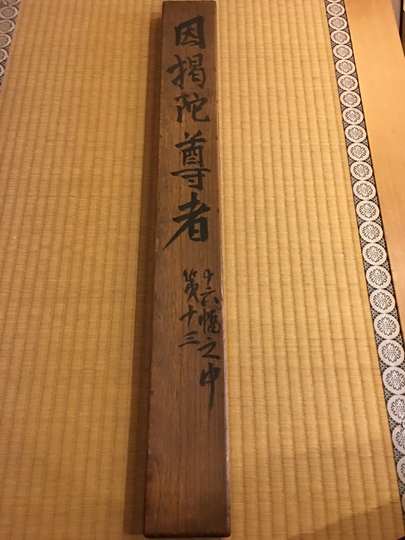 因掲陀尊者
十六幅之中
第十三